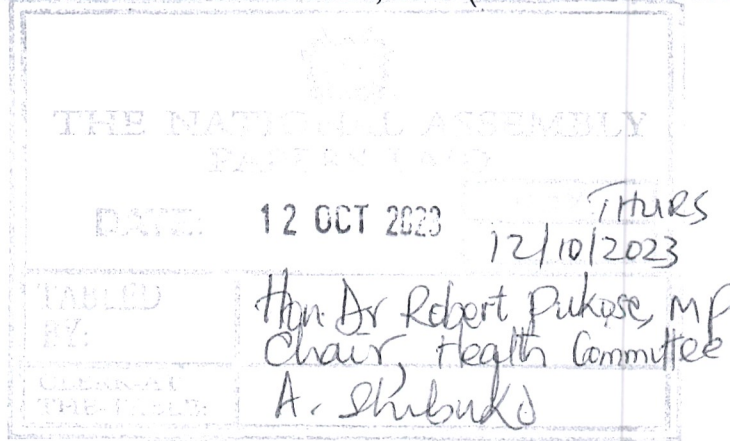 THE NATIONAL ASSEMBLY
PAPERS LAID
DATE: 12 OCT 2023
THURS
12/10/2023
TABLED
BY:
Hon. Dr Robert Pukose, MP
Chair, Health Committee
CLERK-AT
THE-TABLE:
A. Shibuko